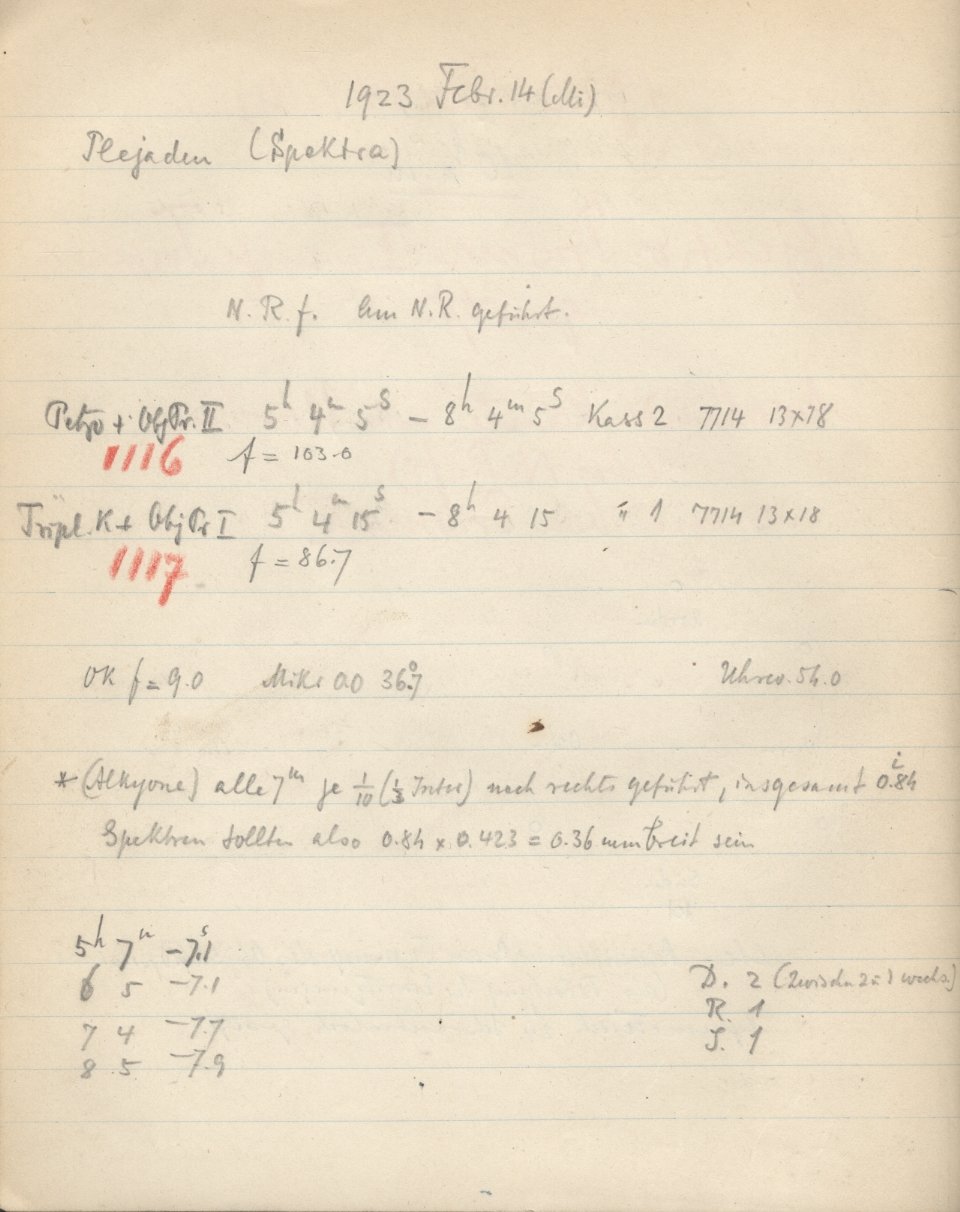 1923 Febr. 14 (Mi)
Plejaden (Spektra)
N. R. f. Am N.R. geführt.
Petzv + ObjPr. II 5h 4m 5s – 8h 4m 5s Kass 2 7714 13×18
1116 f = 103.0
Tripl. K + ObjPr I 5h 4m 15s – 8h 4 15 " 1 7714 13×18
1117 f = 86.7
OK f = 9.0 Mikr 00 36°.7 Uhrv. 54.0
* (Alkyone) alle 7m je 1/10 (1/3 Inter) nach rechts geführt, insgesamt 0.84
Spektren sollten also 0.84 × 0.423 = 0.36 mm breit sein
5h 7m –7.1s
6 5 –7.1 D. 2 (Zwischn 2 u 1 wechs.)
R. 1
7 4 –7.7
S. 1
8 5 –7.9